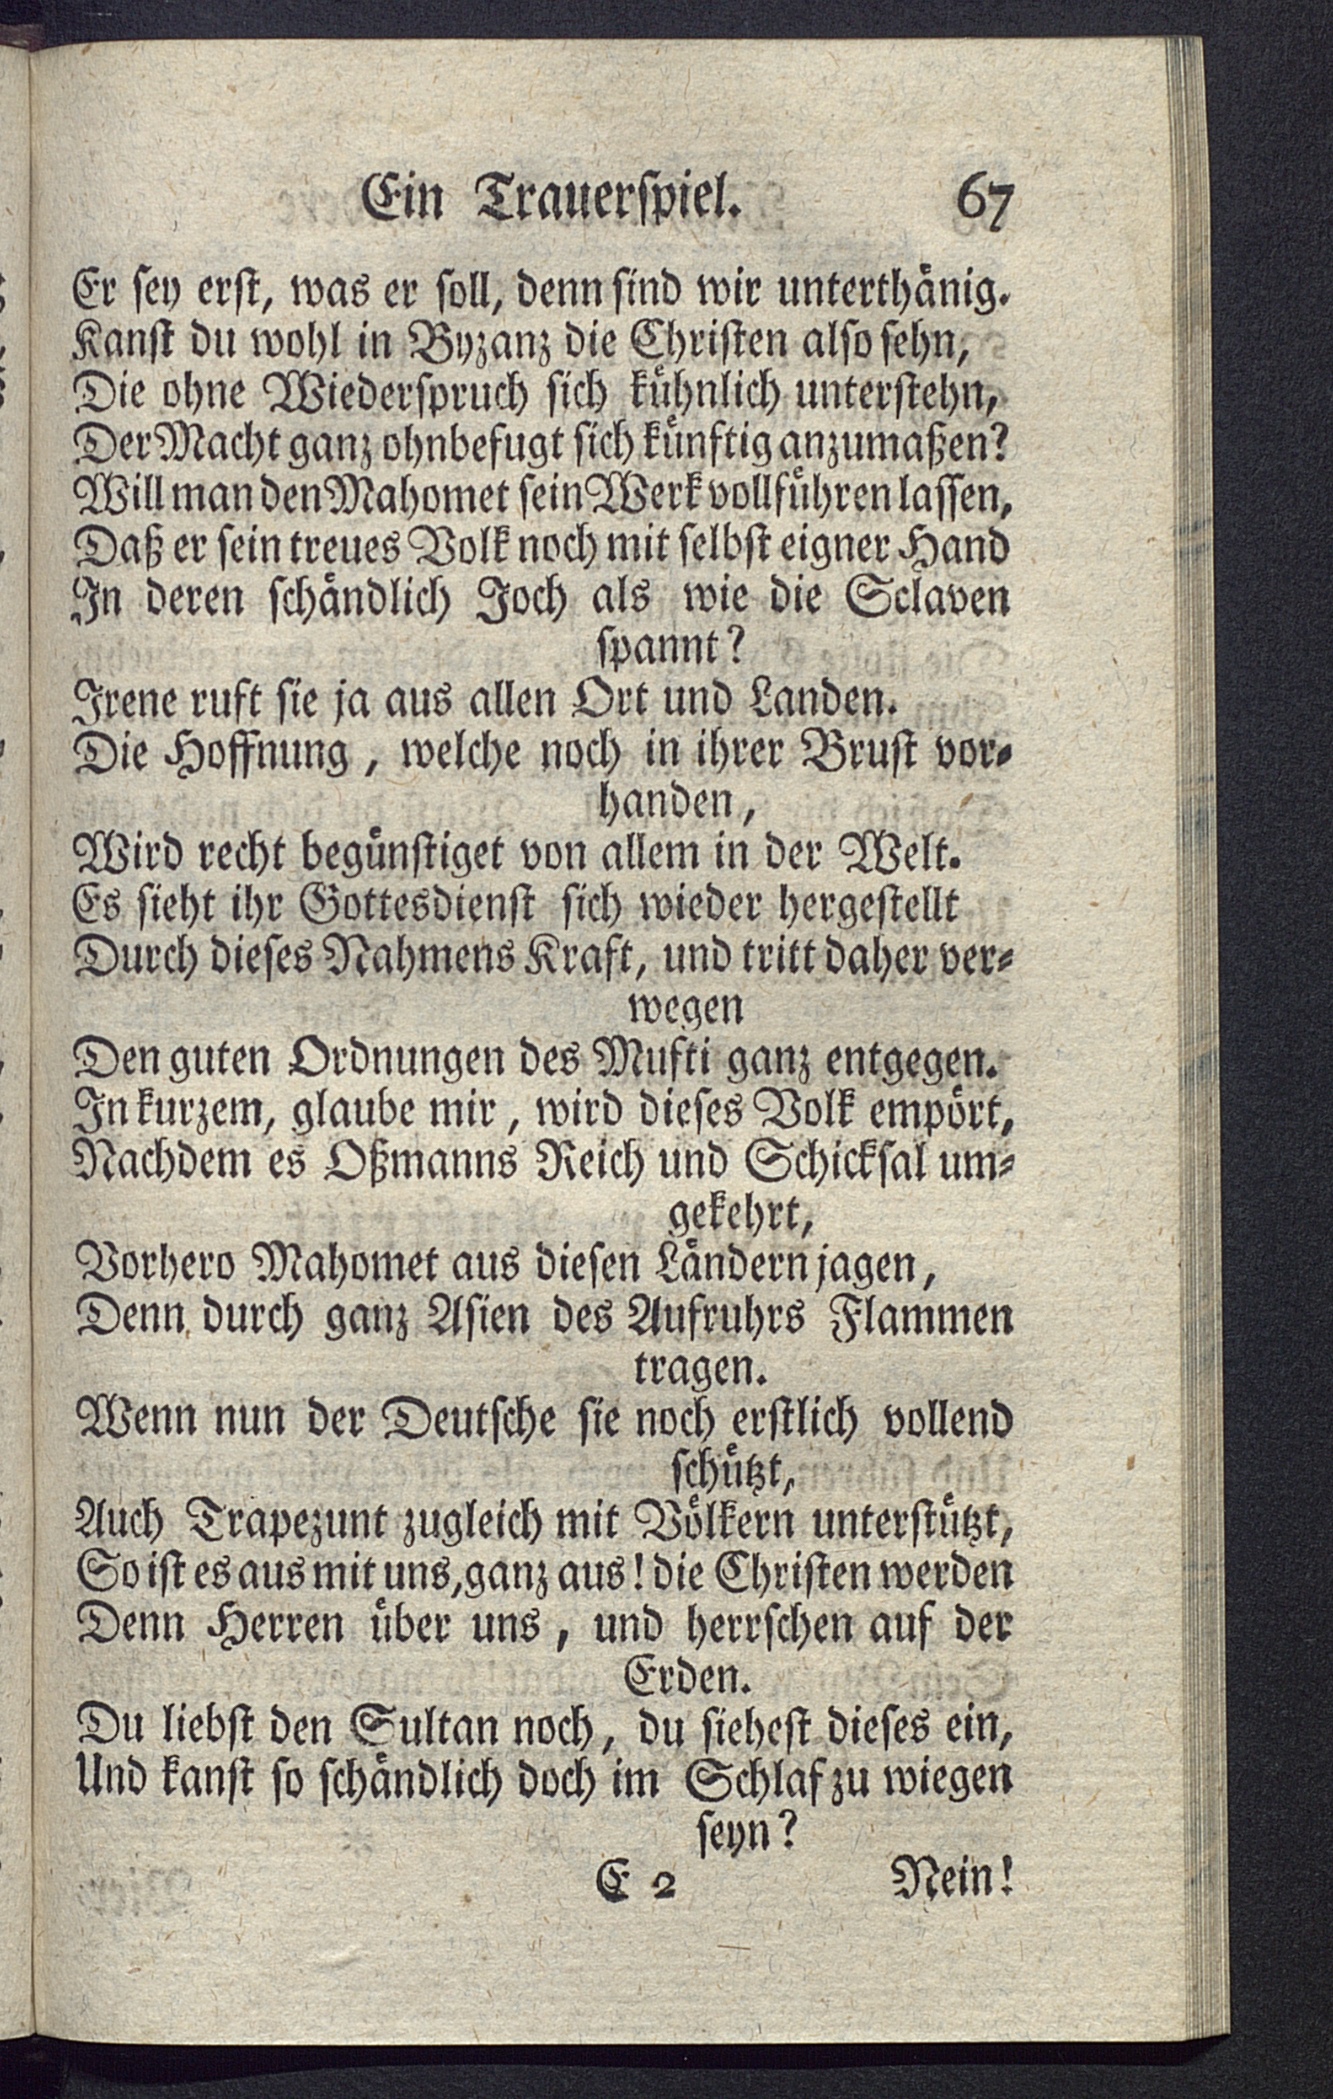 Ein Trauerspiel. 67
Er sey erst, was er soll, denn sind wir unterthänig.
Kanst du wohl in Byzanz die Christen also sehn,
Die ohne Wiederspruch sich kühnlich unterstehn,
Der Macht ganz ohnbefugt sich künftig anzumaßen?
Will man den Mahomet sein Werk vollführen lassen,
Daß er sein treues Volk noch mit selbst eigner Hand
In deren schändlich Joch als wie die Sclaven
spannt?
Irene ruft sie ja aus allen Ort und Landen.
Die Hoffnung, welche noch in ihrer Brust vor-
handen,
Wird recht begünstiget von allem in der Welt.
Es sieht ihr Gottesdienst sich wieder hergestellt
Durch dieses Nahmens Kraft, und tritt daher ver-
wegen
Den guten Ordnungen des Mufti ganz entgegen.
In kurzem, glaube mir, wird dieses Volk empört,
Nachdem es Oßmanns Reich und Schicksal um-
gekehrt,
Vorhero Mahomet aus diesen Ländern jagen,
Denn durch ganz Asien des Aufruhrs Flammen
tragen.
Wenn nun der Deutsche sie noch erstlich vollend
schützt,
Auch Trapezunt zugleich mit Völkern unterstützt,
So ist es aus mit uns, ganz aus! die Christen werden
Denn Herren über uns, und herrschen auf der
Erden.
Du liebst den Sultan noch, du siehest dieses ein,
Und kanst so schändlich doch im Schlaf zu wiegen
seyn?
E 2 Nein!